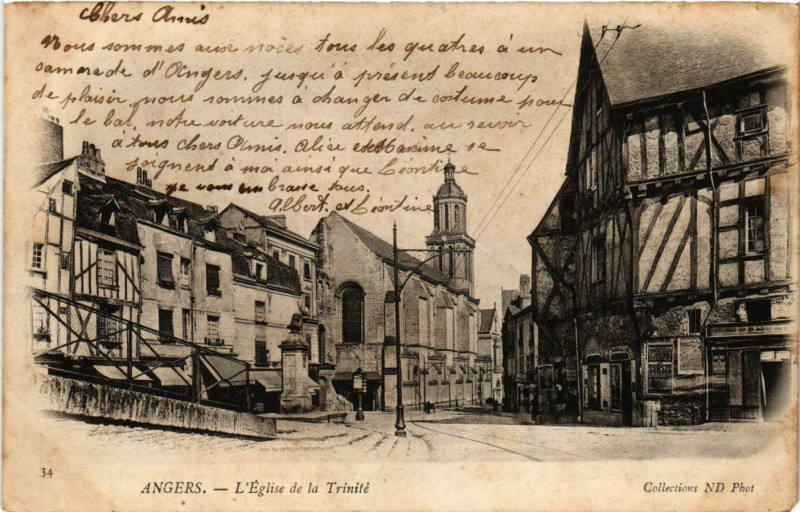 Chers Amis
Nous sommes aux noces tous les quatres à un
camarade d'Angers, jusqu'à présent beaucoup
de plaisir, nous sommes à changer de costume pour
le bal, notre voiture nous attend, au revoir
à tous chers Amis, Alice et Maxime se
joignent à moi ainsi que Léontine
je vous embrasse tous.
Albert et Léontine
34
ANGERS. — L'Église de la Trinité
Collections ND Phot